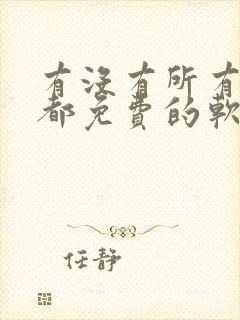 有没有所有
都免费的软
任静